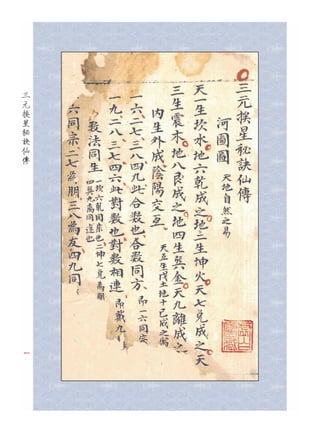 三元挨星秘訣仙傳
河圖圖 天地自然之易
天一生坎水地六乾成之地二生坤火天七兌成之天
三生震木地八艮成之地四生巽金天九離成之
天五生戊土地十己成之
內生外成陰陽交互
一六二七三八四九此合數也合數同方 即一六同宗
一九二八三七四六此對數也對數相連 即戴九
數法同生 一坎六乾同宗也二坤七兌為朋
四巽九離同道也
六同宗二七為朋三八為友四九同
三元挨星秘訣仙傳
一